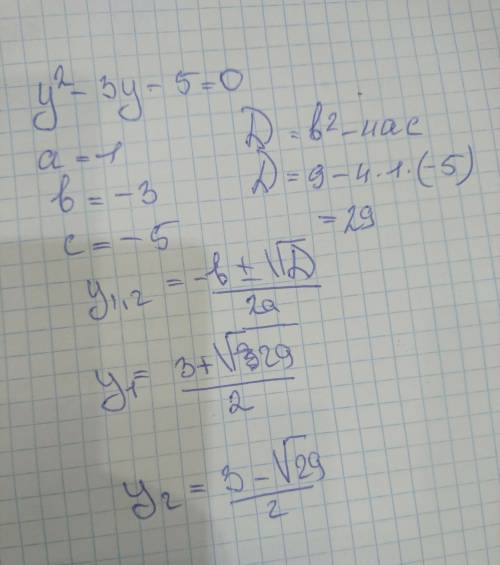 y² - 3y - 5 = 0
a = 1
b = -3
c = -5
D = b² - 4ac
D = 9 - 4 · 1 · (-5)
= 29
y₁,₂ = (-b ± √D) / 2a
y₁ = (3 + √29) / 2
y₂ = (3 - √29) / 2